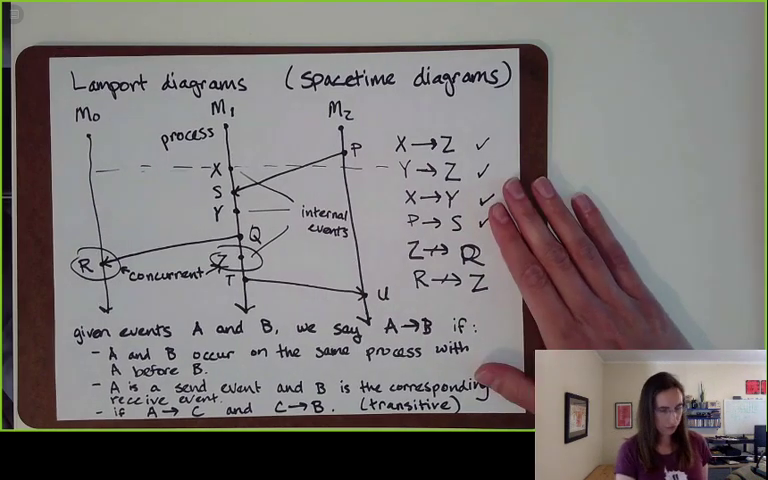 Lamport diagrams (spacetime diagrams)
M0 M1 M2
process
P
X
S
Y
internal
events
Q
R
concurrent
Z
T
U
X→Z ✓
Y→Z ✓
X→Y ✓
P→S ✓
Z↛R
R↛Z
given events A and B, we say A→B if:
- A and B occur on the same process with
A before B.
- A is a send event and B is the corresponding
receive event.
- if A→C and C→B. (transitive)